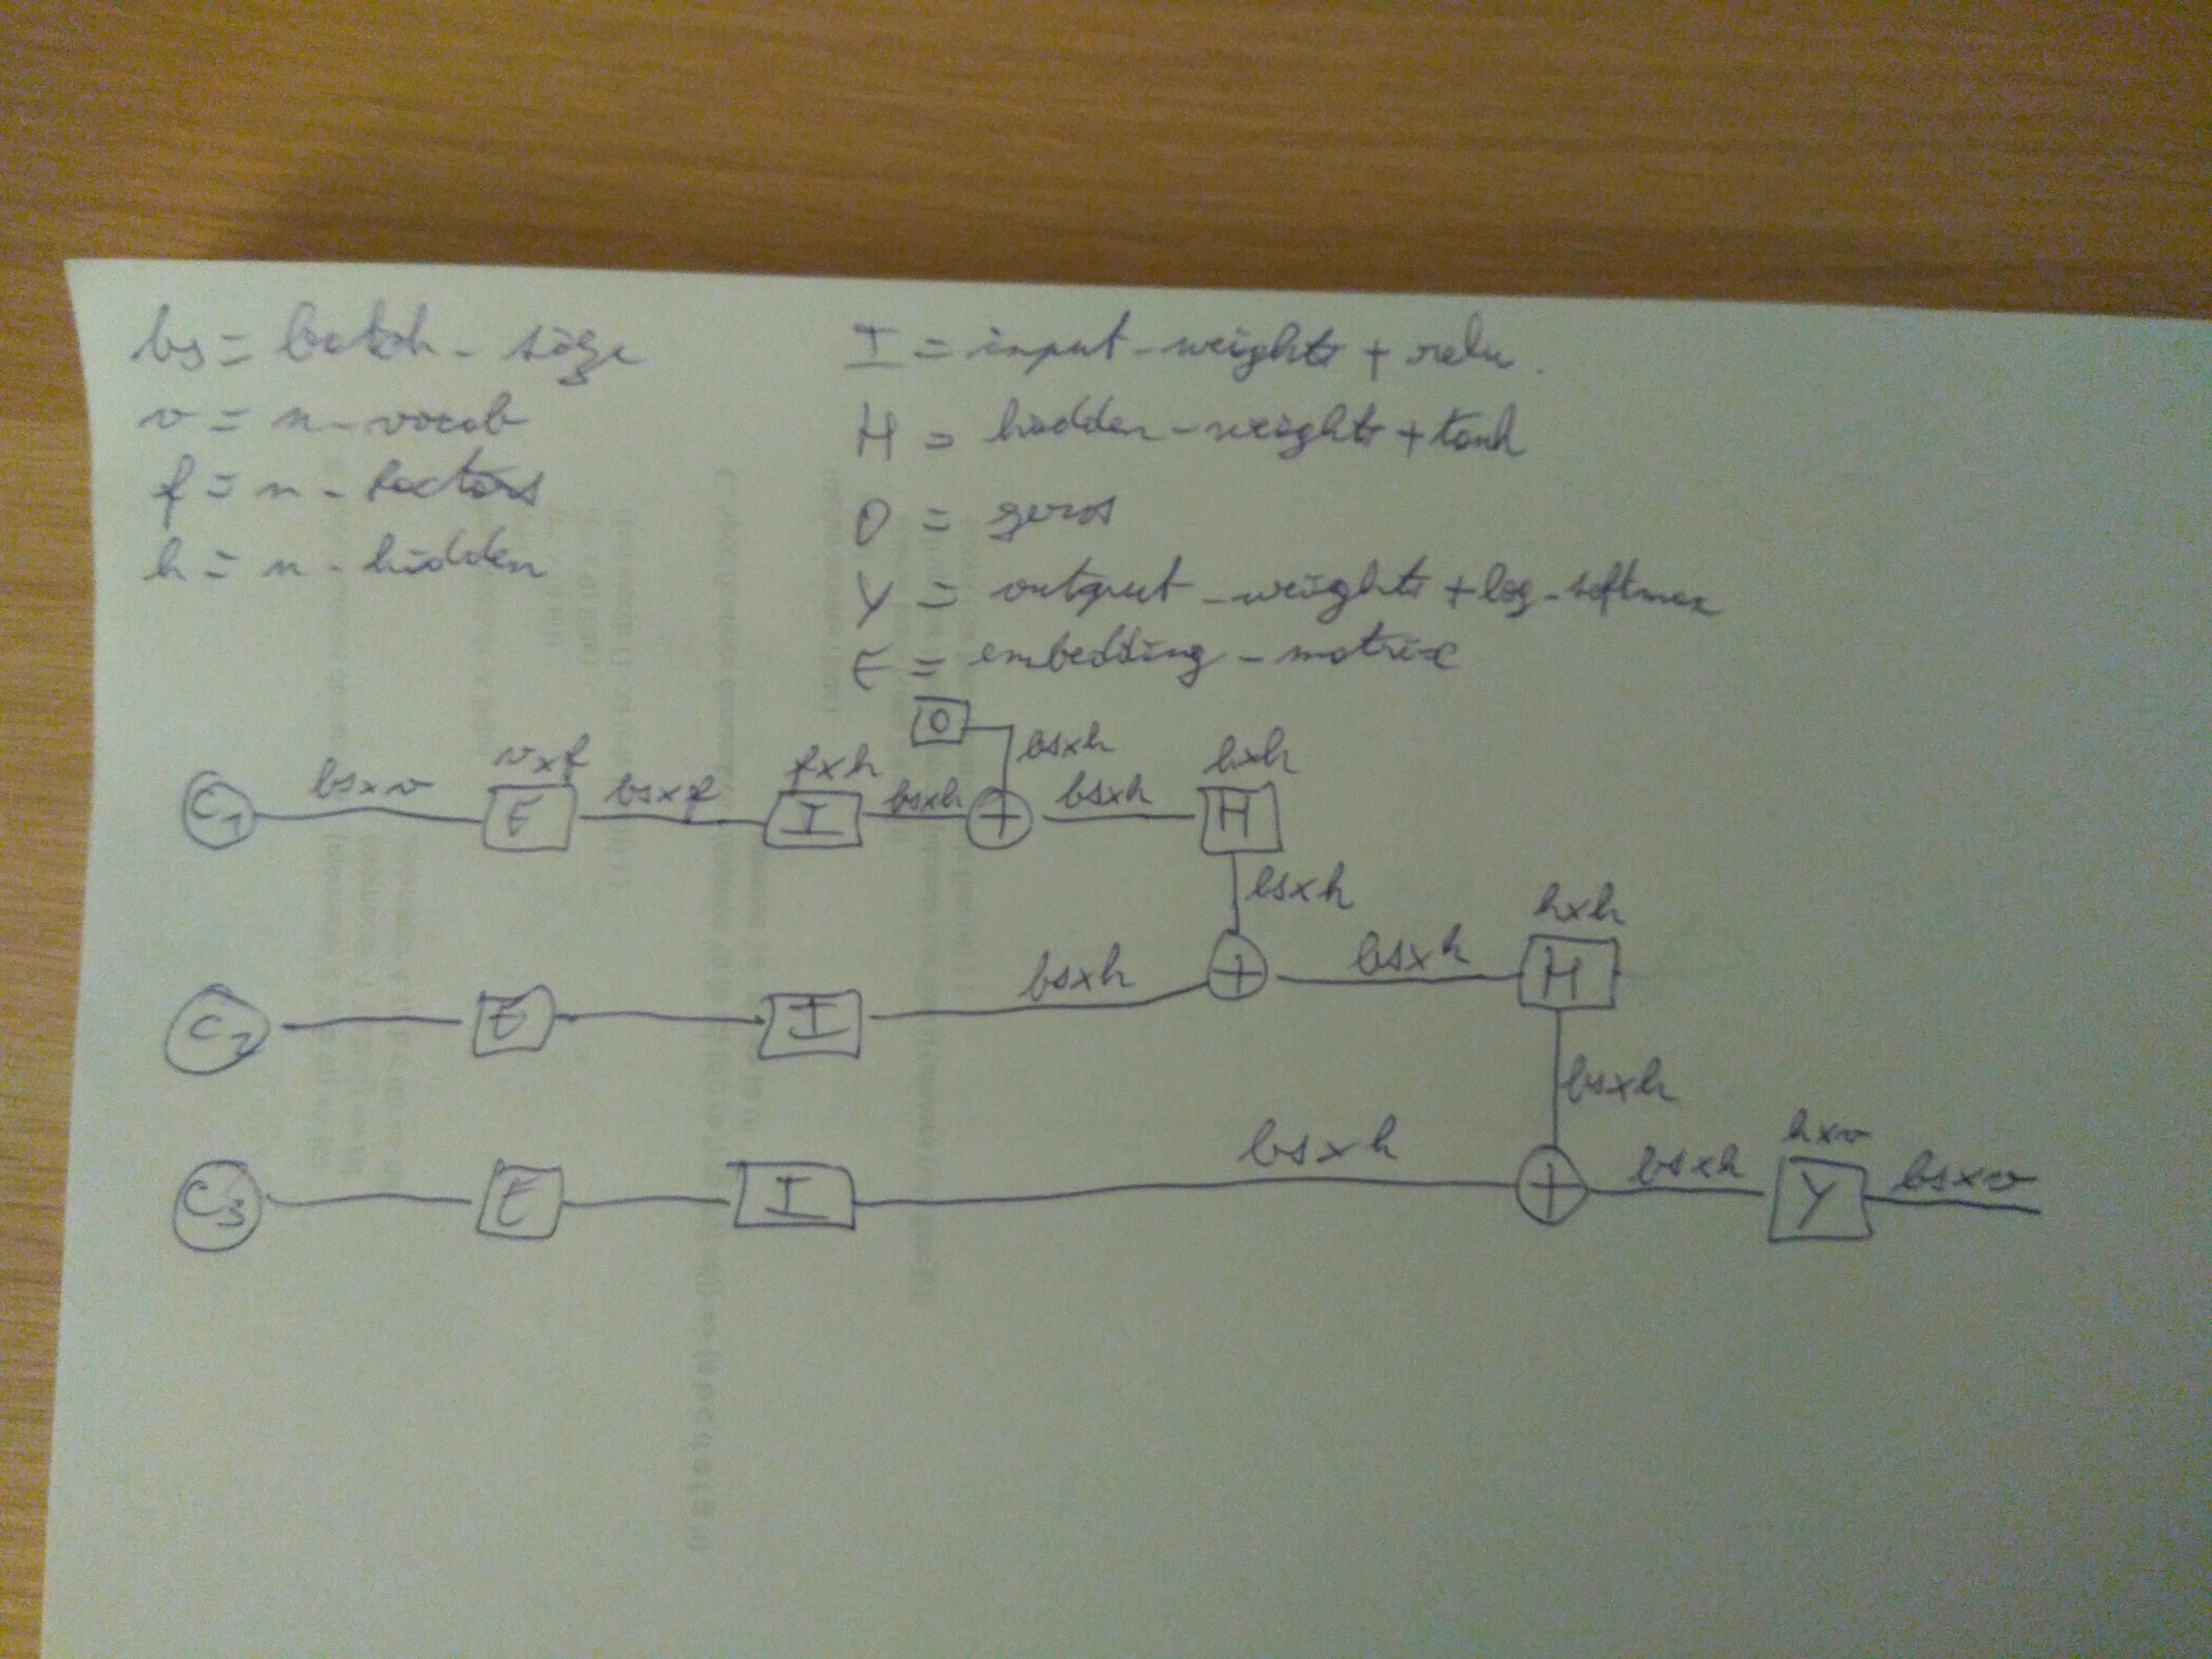 bs = batch - size
v = n - vocab
f = n - factors
h = n - hidden
I = input - weights + relu.
H = hidden - weights + tanh
O = zeros
Y = output - weights + log - softmax
E = embedding - matrix
O
bsxh
C1 bsxv vxf E bsxf fxh I bsxh + bsxh hxh H
bsxh
C2 E I bsxh + bsxh hxh H
bsxh
C3 E I bsxh + bsxh hxv Y bsxv